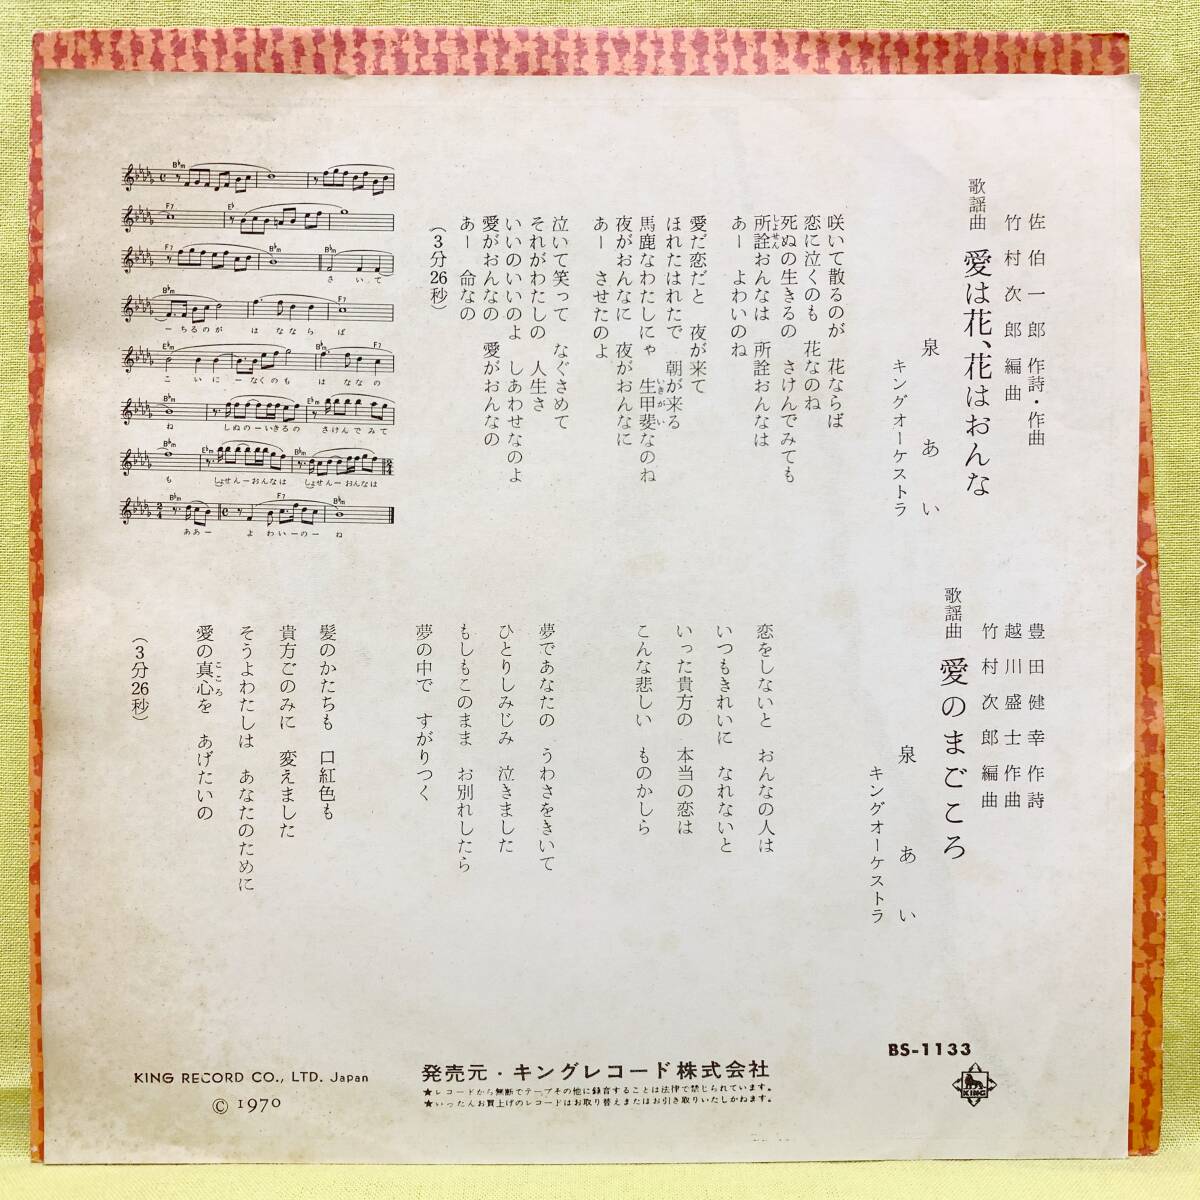 佐伯一郎 作詩・作曲
竹村次郎 編曲
歌謡曲 愛は花、花はおんな
泉 あい
キングオーケストラ
咲いて散るのが 花ならば
恋に泣くのも 花なのね
死ぬの生きるの さけんでみても
所詮おんなは 所詮おんなは
しょせん
あー よわいのね
愛だ恋だと 夜が来て
ほれたはれたで 朝が来る
馬鹿なわたしにゃ 生甲斐なのね
いきがい
夜がおんなに 夜がおんなに
あー させたのよ
泣いて笑って なぐさめて
それがわたしの 人生さ
いいのいいのよ しあわせなのよ
愛がおんなの 愛がおんなの
あー 命なの
(3分26秒)
B♭m
F7 E♭ B♭m
F7 B♭m B♭m
さいて
F7
ーちるのが はなならば
E♭m B♭m F7
こいにーなくのも はななの
B♭m
ね しぬのーいきるの さけんでみて
B♭m B♭m
も しょせんーおんなは しょせんーおんなは
B♭m F7 B♭m
ああー よわいーのーね
豊田健幸 作詩
越川盛士 作曲
竹村次郎 編曲
歌謡曲 愛のまごころ
泉 あい
キングオーケストラ
恋をしないと おんなの人は
いつもきれいに なれないと
いった貴方の 本当の恋は
こんな悲しい ものかしら
夢であなたの うわさをきいて
ひとりしみじみ 泣きました
もしもこのまま お別れしたら
夢の中で すがりつく
髪のかたちも 口紅色も
貴方ごのみに 変えました
そうよわたしは あなたのために
愛の真心を あげたいの
こころ
(3分26秒)
BS-1133
KING
発売元・キングレコード株式会社
★レコードから無断でテープその他に録音することは法律で禁じられています。
★いったんお買上げのレコードはお取り替えまたはお引き取りいたしかねます。
KING RECORD CO., LTD. Japan
© 1970